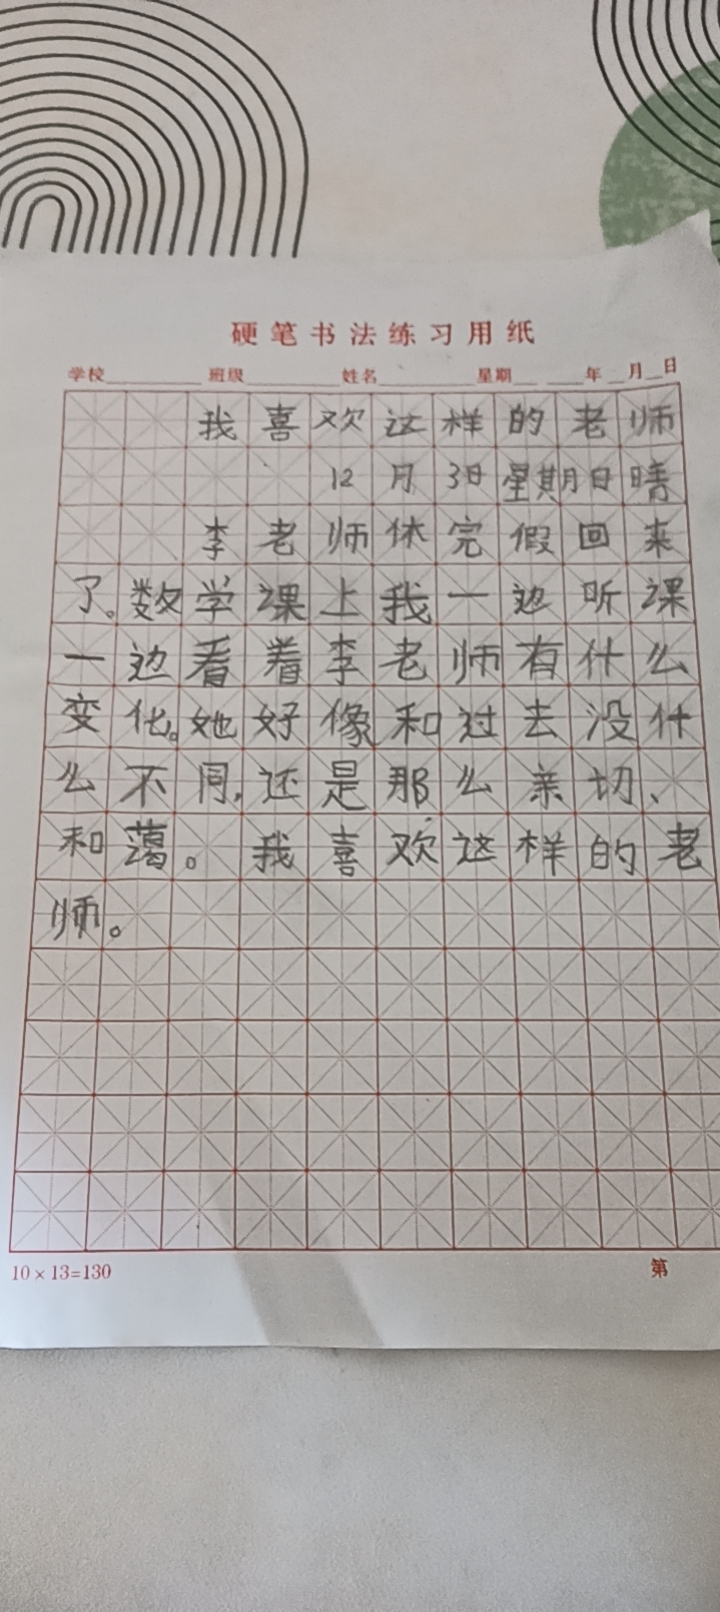 硬笔书法练习用纸
学校 班级 姓名 星期 年 月 日
我喜欢这样的老师
12月3日星期日晴
李老师休完假回来
了。数学课上我一边听课
一边看着李老师有什么
变化。她好像和过去没什
么不同,还是那么亲切、
和蔼。我喜欢这样的老
师。
10×13=130
第